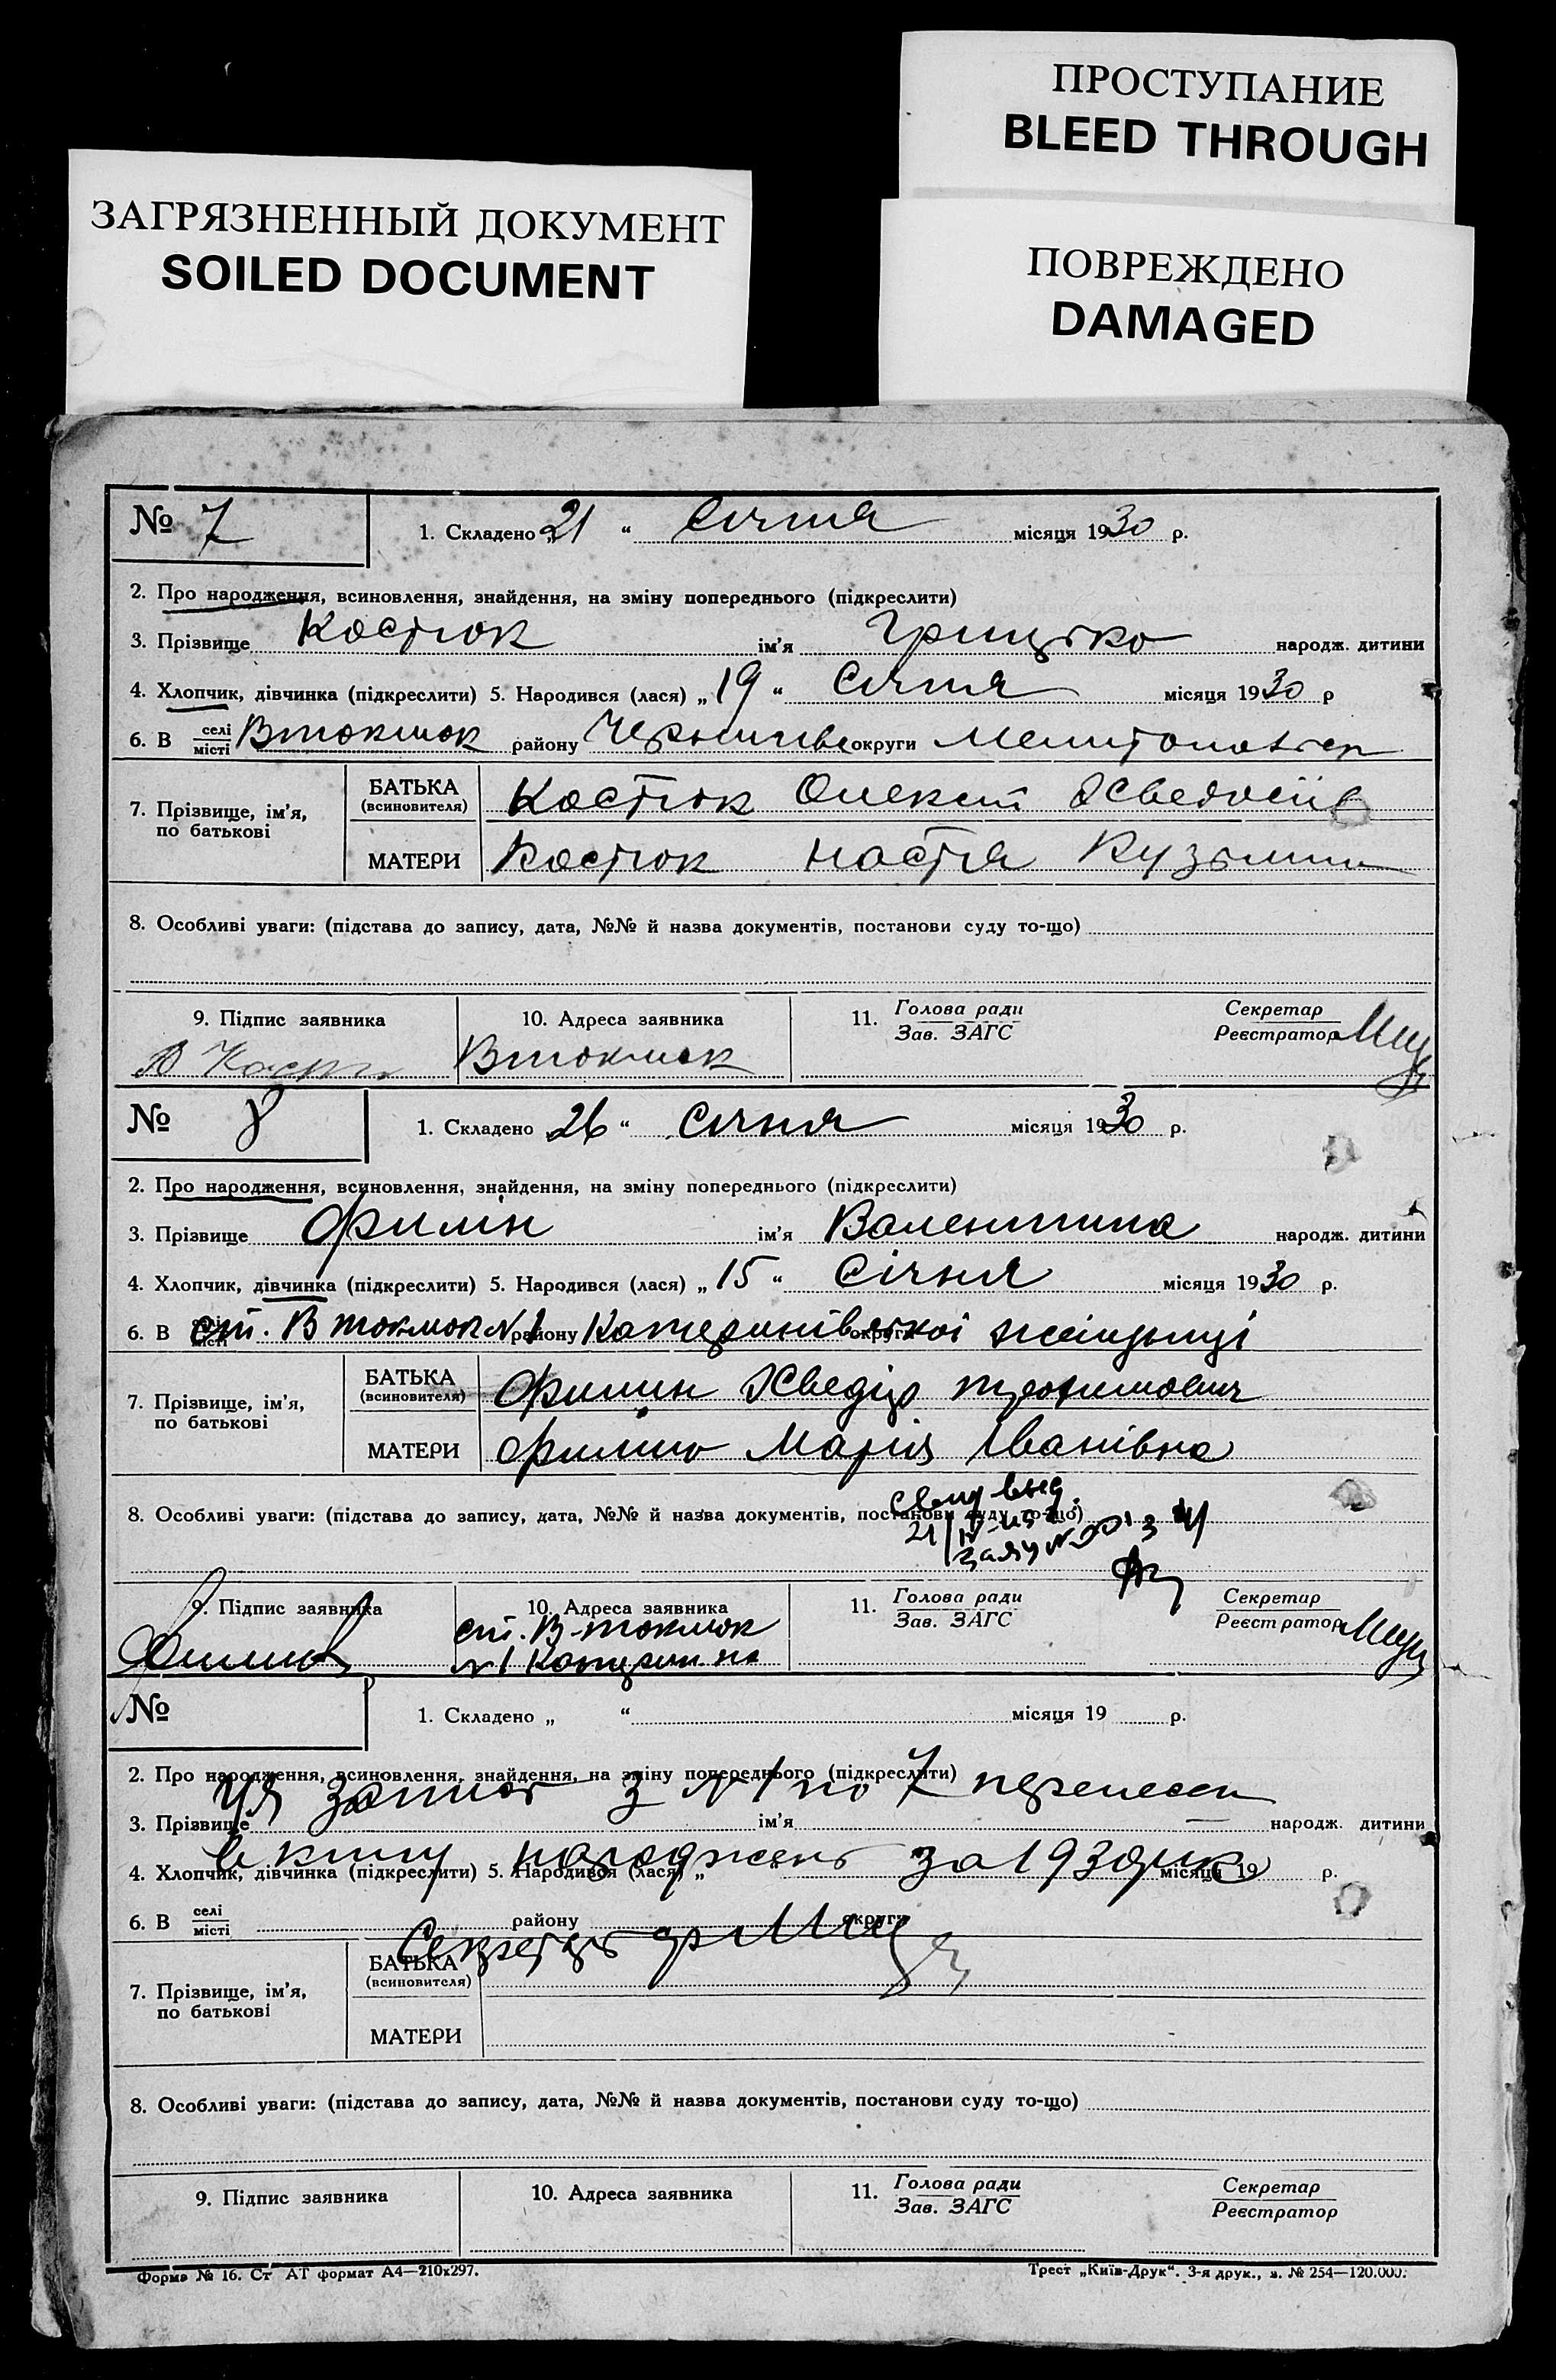 ПРОСТУПАНИЕ
BLEED THROUGH
ЗАГРЯЗНЕННЫЙ ДОКУМЕНТ
SOILED DOCUMENT
ПОВРЕЖДЕНО
DAMAGED
№ 7
1. Складено „21“ Січня місяця 1930 р.
2. Про народження, всиновлення, знайдення, на зміну попереднього (підкреслити)
3. Прізвище Костюк ім'я Грицько народж. дитини
4. Хлопчик, дівчинка (підкреслити) 5. Народився (лася) „19“ Січня місяця 1930 р
6. В селі місті Втокмок району округи
7. Прізвище, ім'я, по батькові
БАТЬКА (всиновителя) Костюк Олексій
МАТЕРИ Костюк Настя
8. Особливі уваги: (підстава до запису, дата, №№ й назва документів, постанови суду то-що)
9. Підпис заявника
10. Адреса заявника Втокмок
11. Голова ради Зав. ЗАГС
Секретар Реєстратор
№ 8
1. Складено 26“ Січня місяця 1930 р.
2. Про народження, всиновлення, знайдення, на зміну попереднього (підкреслити)
3. Прізвище Филін ім'я Валентина народж. дитини
4. Хлопчик, дівчинка (підкреслити) 5. Народився (лася) „15“ Січня місяця 1930 р.
6. В ст. В токмок №1 району Катеринівської округи залізниці
7. Прізвище, ім'я, по батькові
БАТЬКА (всиновителя) Филин Хведір
МАТЕРИ Марія Іванівна
8. Особливі уваги: (підстава до запису, дата, №№ й назва документів, постанови суду то-що)
9. Підпис заявника
10. Адреса заявника
ст. В-токмок
№1
11. Голова ради Зав. ЗАГС
Секретар Реєстратор
№
1. Складено „ “ місяця 19 р.
2. Про народження, всиновлення, знайдення, на зміну попереднього (підкреслити)
Ця з №1 по 7
3. Прізвище ім'я народж. дитини
в книгу народжень за 193
4. Хлопчик, дівчинка (підкреслити) 5. Народився (лася) „ “ місяця 19 р.
6. В селі місті району округи
Секретар
7. Прізвище, ім'я, по батькові
БАТЬКА (всиновителя)
МАТЕРИ
8. Особливі уваги: (підстава до запису, дата, №№ й назва документів, постанови суду то-що)
9. Підпис заявника
10. Адреса заявника
11. Голова ради Зав. ЗАГС
Секретар Реєстратор
Форма № 16. Ст АТ формат А4—210х297.
Трест „Київ-Друк“. 3-я друк., з. № 254—120.000.